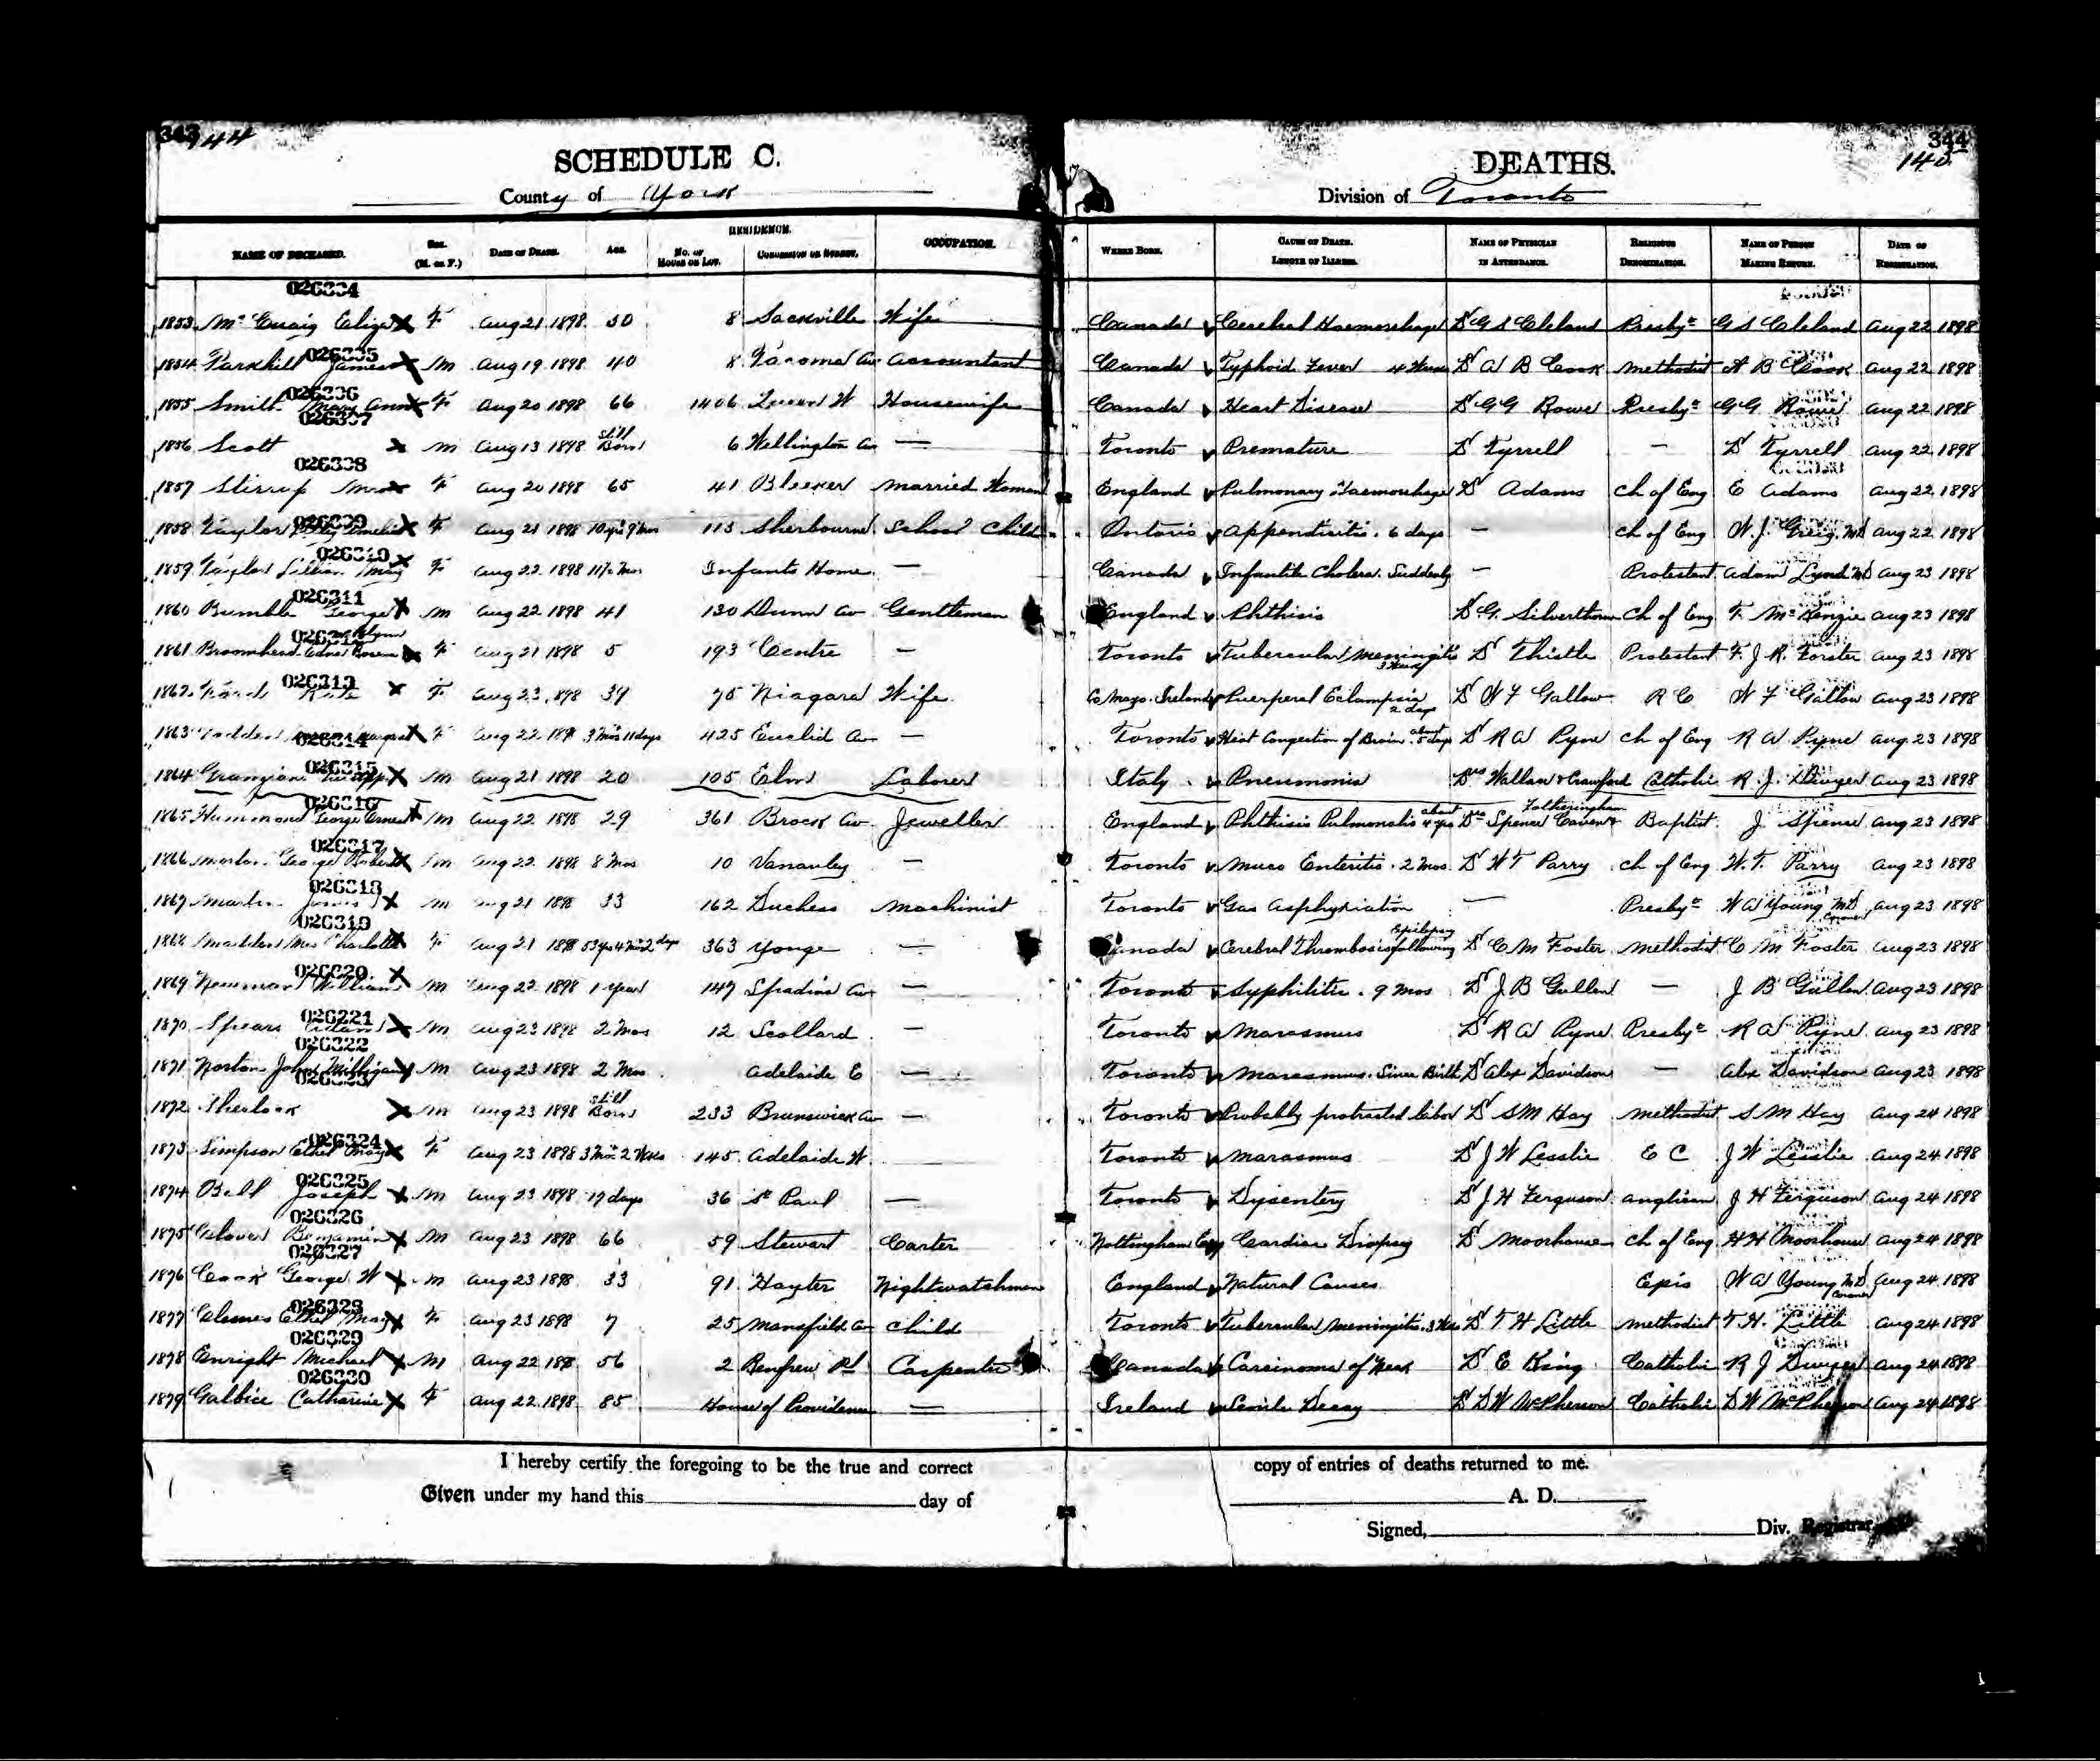 343 144
SCHEDULE C.
County of York
DEATHS.
344
140
Division of Toronto
NAME OF DECEASED. Sex. (M. or F.) Date of Death. Age. RESIDENCE. No. of House or Lot. Concession or Street. OCCUPATION. Where Born. Cause of Death. Length of Illness. Name of Physician in Attendance. Religious Denomination. Name of Person Making Return. Date of Registration.
026304
1853 Mc Cuaig Eliza X F Aug 21 1898 50 8 Sackville Wife Canada Cerebral Haemorrhage Dr G S Cleland Presbyn G S Cleland Aug 22 1898
026305
1854 Parkhill James X M Aug 19 1898 40 8 Tacoma Av Accountant Canada Typhoid Fever 4 Wks Dr A B Cook Methodist A B Cook Aug 22 1898
026306
1855 Smith Mary Ann X F Aug 20 1898 66 1406 Queen W Housewife Canada Heart Disease Dr G G Rowe Presbyn G G Rowe Aug 22 1898
026307
1856 Scott X M Aug 13 1898 Still Born 6 Wellington Av — Toronto Premature Dr Tyrrell — Dr Tyrrell Aug 22 1898
026308
1857 Stirrup Mrs X F Aug 20 1898 65 41 Bleeker Married Woman England Pulmonary Haemorrhage Dr Adams Ch of Eng E Adams Aug 22 1898
026309
1858 Taylor X F Aug 21 1898 10 yrs 9 mos 113 Sherbourne School Child Ontario Appendicitis. 6 days — Ch of Eng W. J. Greig. MD Aug 22 1898
026310
1859 Taylor Lillian May X F Aug 22 1898 11½ mos Infants Home — Canada Infantile Cholera. Suddenly — Protestant Adam Lynd MD Aug 23 1898
026311
1860 Bumble George X M Aug 22 1898 41 130 Dunn Av Gentleman England Phthisis Dr G. Silverthorn Ch of Eng F. McKenzie Aug 23 1898
026312
1861 Broomhead Edna X F Aug 21 1898 5 193 Centre — Toronto Tubercular Meningitis 3 Weeks Dr Thistle Protestant F. J. R. Forster Aug 23 1898
026313
1862 Kate X F Aug 23 1898 39 75 Niagara Wife Co Mayo. Ireland Puerperal Eclampsia 2 days Dr W F Gallow R C W F Gallow Aug 23 1898
026314
1863 Margaret X F Aug 22 1898 3 mos 11 days 425 Euclid Av — Toronto Heat Congestion of Brain. about 5 days Dr R A Pyne Ch of Eng R A Pyne Aug 23 1898
026315
1864 X M Aug 21 1898 20 105 Elm Laborer Italy Pneumonia Drs Wallace & Crawford Catholic R. J. Dwyer Aug 23 1898
026316
1865 Hammond George Ernest X M Aug 22 1898 29 361 Brock Av Jeweller England Phthisis Pulmonalis about 4 yrs Drs Spence Caven & Fotheringham Baptist J Spence Aug 23 1898
026317
1866 George Robert X M Aug 22 1898 8 Mos 10 Vanauley — Toronto Muco Enteritis. 2 mos Dr W T Parry Ch of Eng W. T. Parry Aug 23 1898
026318
1867 Martin James X M Aug 21 1898 33 162 Duchess Machinist Toronto Gas Asphyxiation — Presbyn W A Young MD Coroner Aug 23 1898
026319
1868 Madden Mrs Charlotte X F Aug 21 1898 53 yrs 4 mos 2 days 363 Yonge — Canada Cerebral Thrombosis following Epilepsy Dr C M Foster Methodist C M Foster Aug 23 1898
026320
1869 Newman William X M Aug 22 1898 1 year 147 Spadina Av — Toronto Syphilitic. 9 mos Dr J B Gullen — J B Gullen Aug 23 1898
026321
1870 Spears Adam X M Aug 23 1898 2 Mos 12 Scollard — Toronto Marasmus Dr R A Pyne Presbyn R A Pyne Aug 23 1898
026322
1871 Norton John Milligan X M Aug 23 1898 2 Mos Adelaide E — Toronto Marasmus. Since Birth Dr Alex Davidson — Alex Davidson Aug 23 1898
026323
1872 Sherlock X M Aug 23 1898 Still Born 233 Brunswick Av — Toronto Probably protracted labor Dr S M Hay Methodist S M Hay Aug 24 1898
026324
1873 Simpson Ethel May X F Aug 23 1898 3 Mos 2 Wks 145 Adelaide W. — Toronto Marasmus Dr J W Lesslie E C J W Lesslie Aug 24 1898
026325
1874 Bell Joseph X M Aug 23 1898 17 days 36 St Paul — Toronto Dysentery Dr J H Ferguson Anglican J H Ferguson Aug 24 1898
026326
1875 Glover Benjamin X M Aug 23 1898 66 59 Stewart Carter Nottingham Eng Cardiac Dropsy Dr Moorhouse Ch of Eng H H Moorhouse Aug 24 1898
026327
1876 Cook George W X M Aug 23 1898 33 91 Hayter Nightwatchman England Natural Causes Epis W A Young MD Coroner Aug 24 1898
026328
1877 Ethel May X F Aug 23 1898 7 25 Mansfield Av Child Toronto Tubercular Meningitis. 3 Wks Dr T H Little Methodist T. H. Little Aug 24 1898
026329
1878 Enright Michael X M Aug 22 1898 56 2 Renfrew Pl Carpenter Canada Carcinoma of Neck Dr E King Catholic R J Dwyer Aug 24 1898
026330
1879 Galbice Catharine X F Aug 22 1898 85 House of Providence — Ireland Senile Decay Dr D W McPherson Catholic D W McPherson Aug 24 1898
I hereby certify the foregoing to be the true and correct copy of entries of deaths returned to me.
Given under my hand this day of A. D.
Signed, Div. Registrar